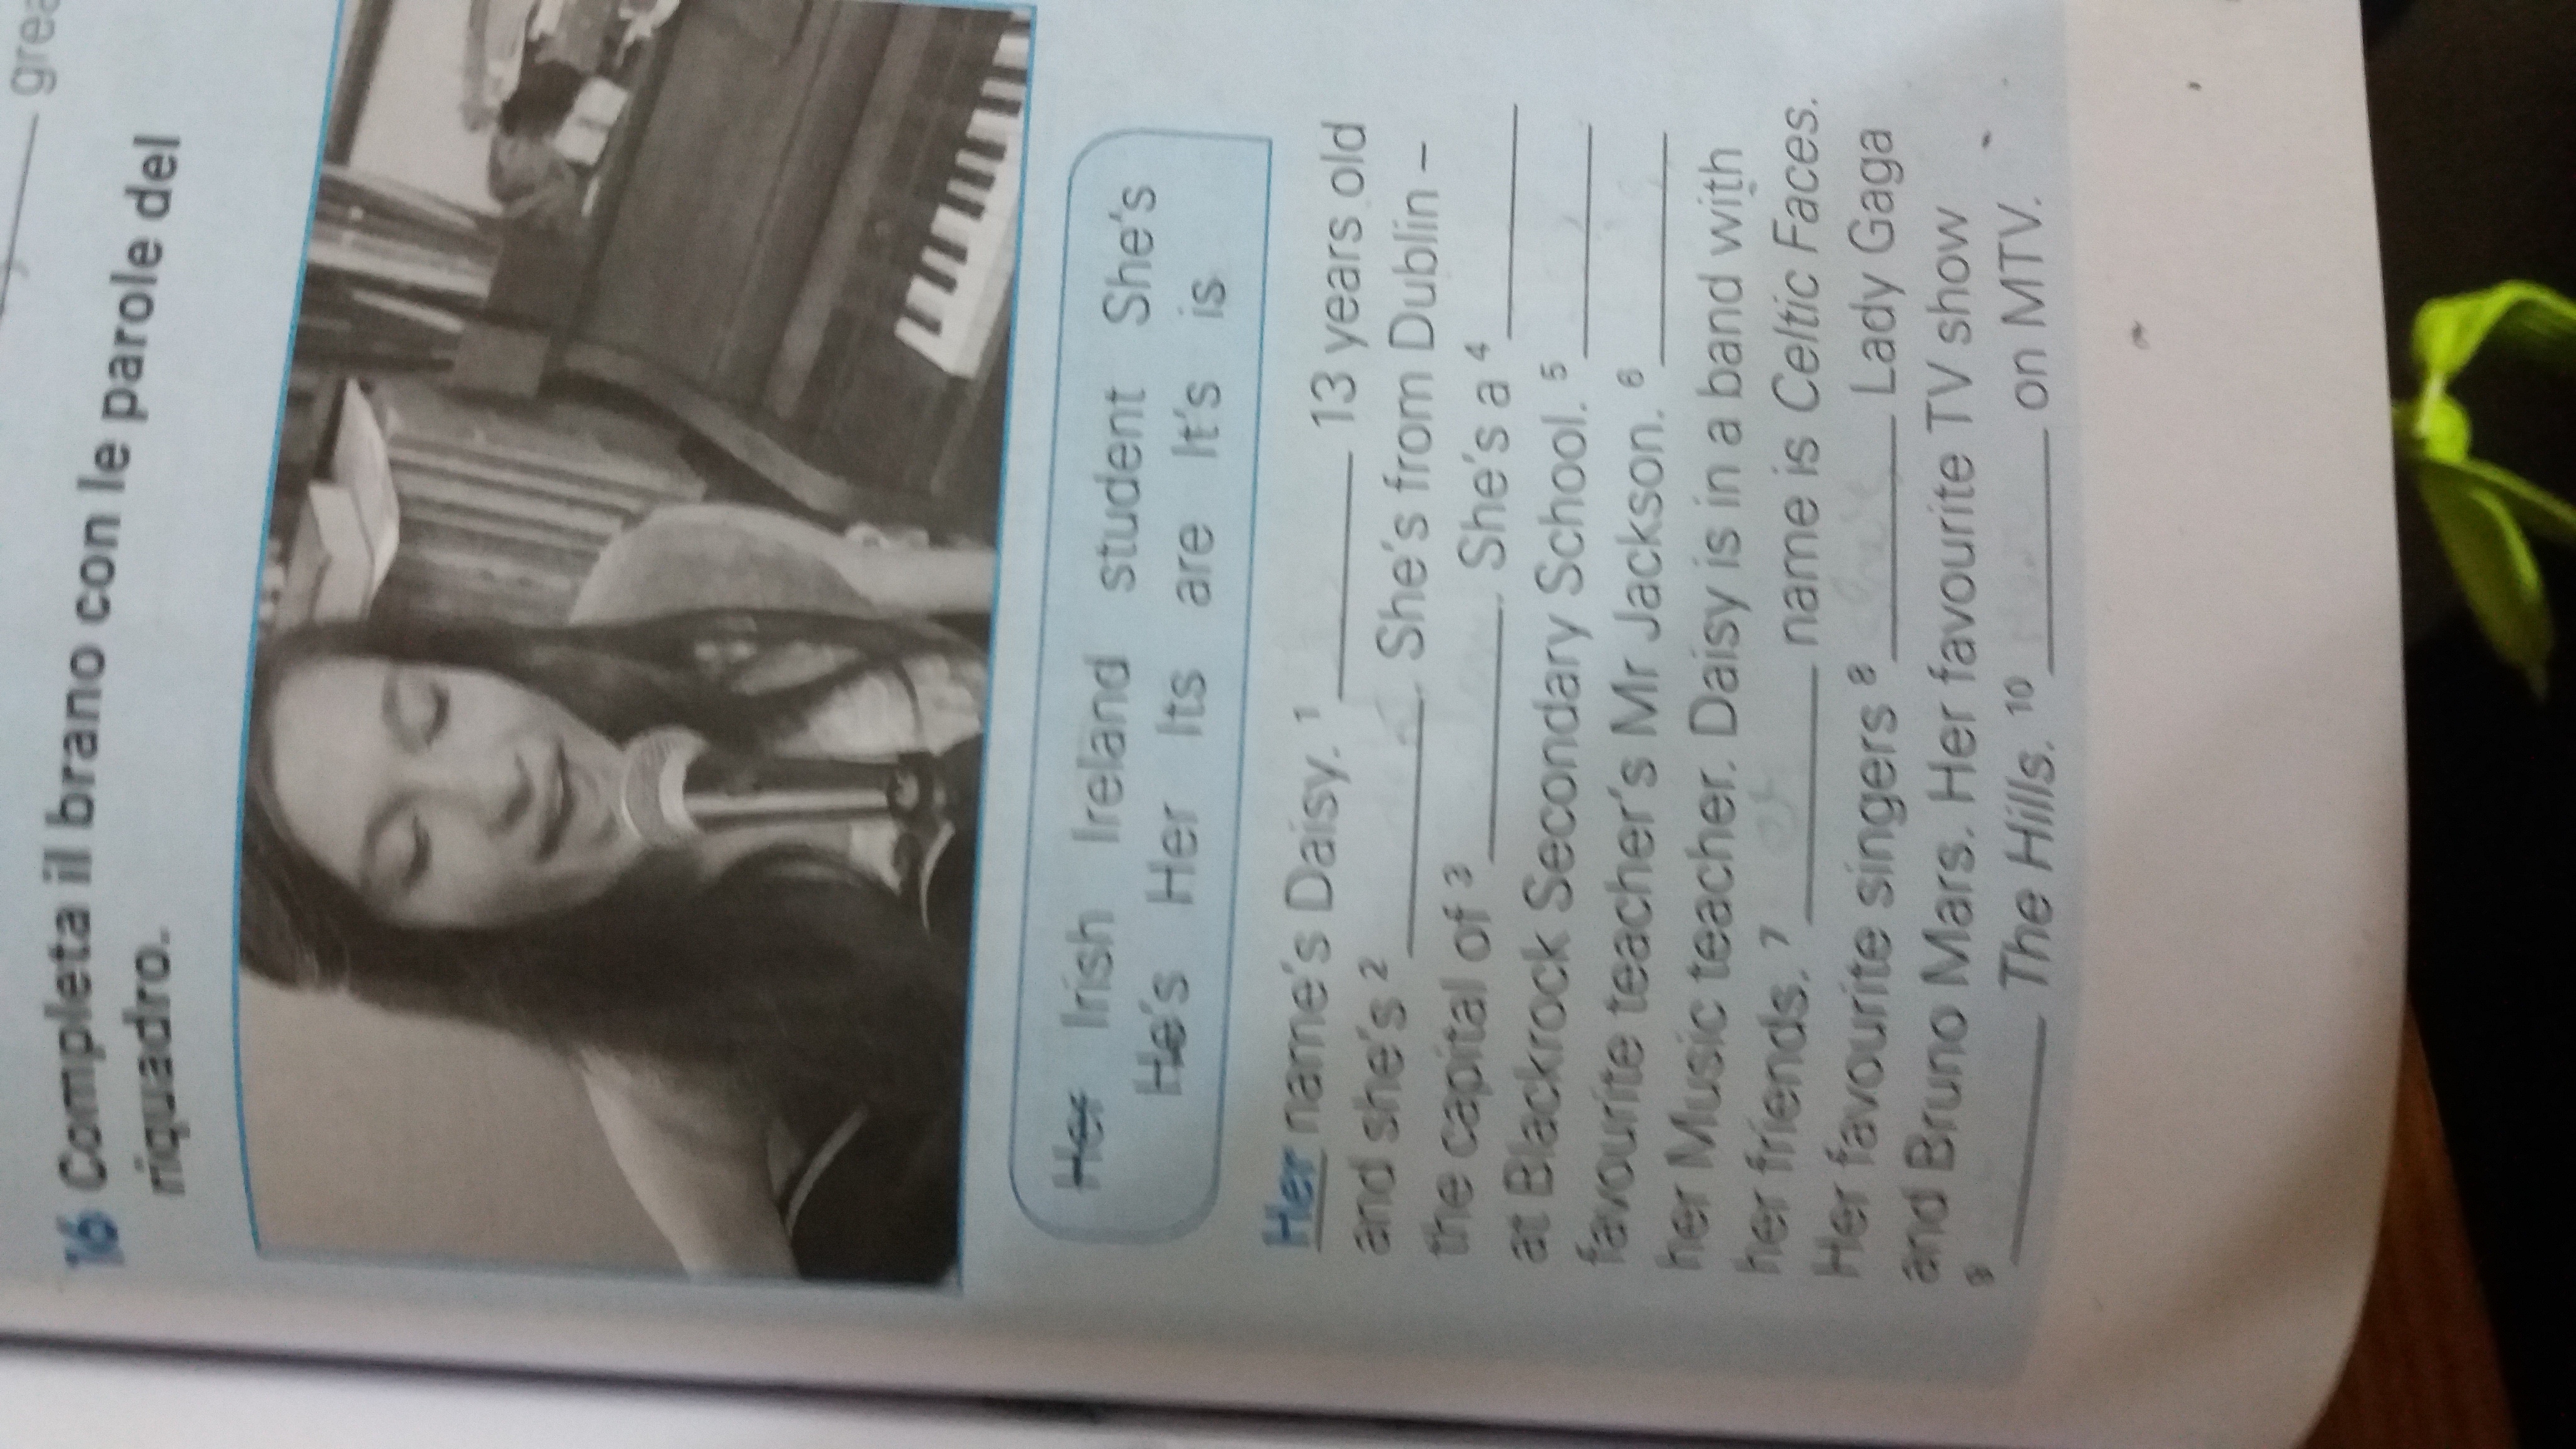 grea
16 Completa il brano con le parole del
riquadro.
Her Irish Ireland student She's
He's Her Its are It's is
Her name's Daisy. 1 ______ 13 years old
and she's 2 ______. She's from Dublin –
the capital of 3 ______. She's a 4 ______
at Blackrock Secondary School. 5 ______
favourite teacher's Mr Jackson. 6 ______
her Music teacher. Daisy is in a band with
her friends. 7 ______ name is Celtic Faces.
Her favourite singers 8 ______ Lady Gaga
and Bruno Mars. Her favourite TV show
9 ______ The Hills. 10 ______ on MTV.